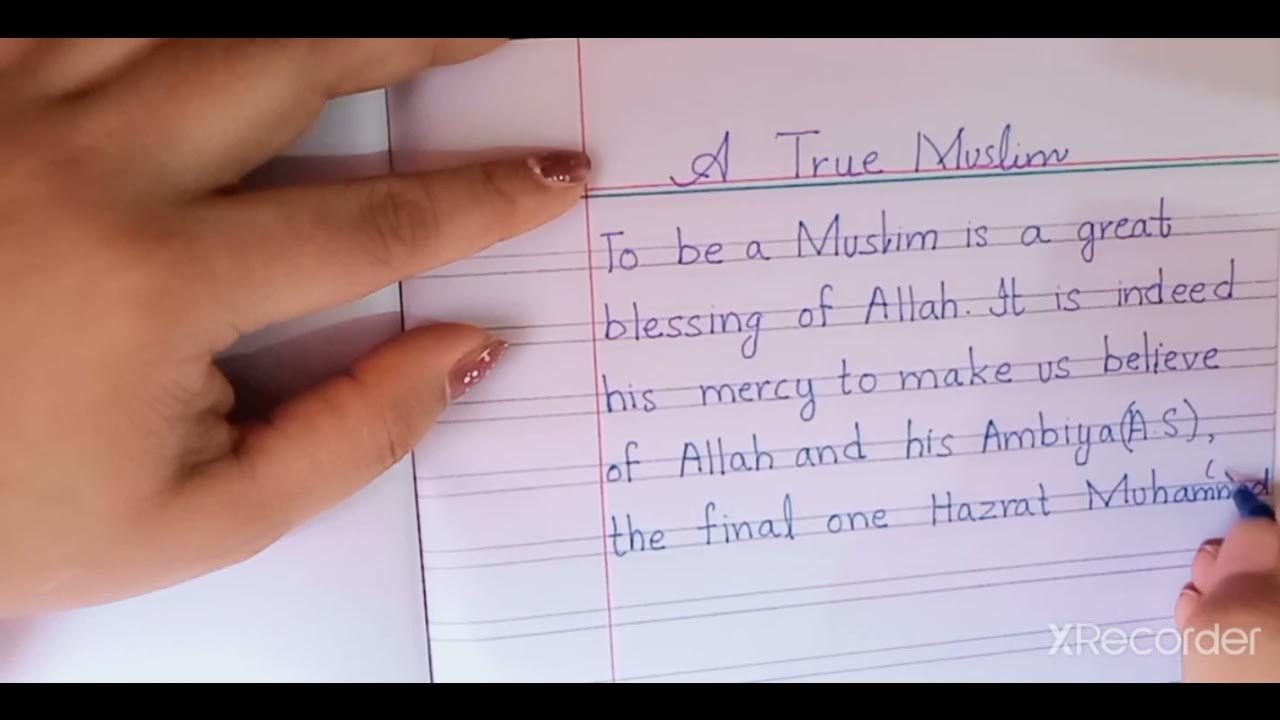 A True Muslim
To be a Muslim is a great
blessing of Allah. It is indeed
his mercy to make us believe
of Allah and his Ambiya(A.S),
the final one Hazrat Muhammad
XRecorder